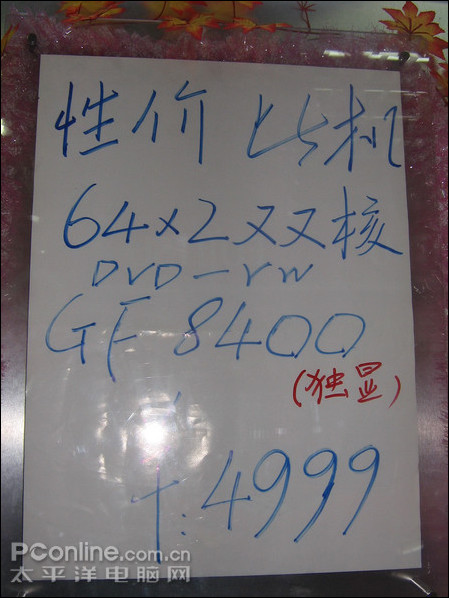 性价比机
64x2双核
DVD-rw
GF 8400
(独显)
¥:4999
PConline.com.cn
太平洋电脑网